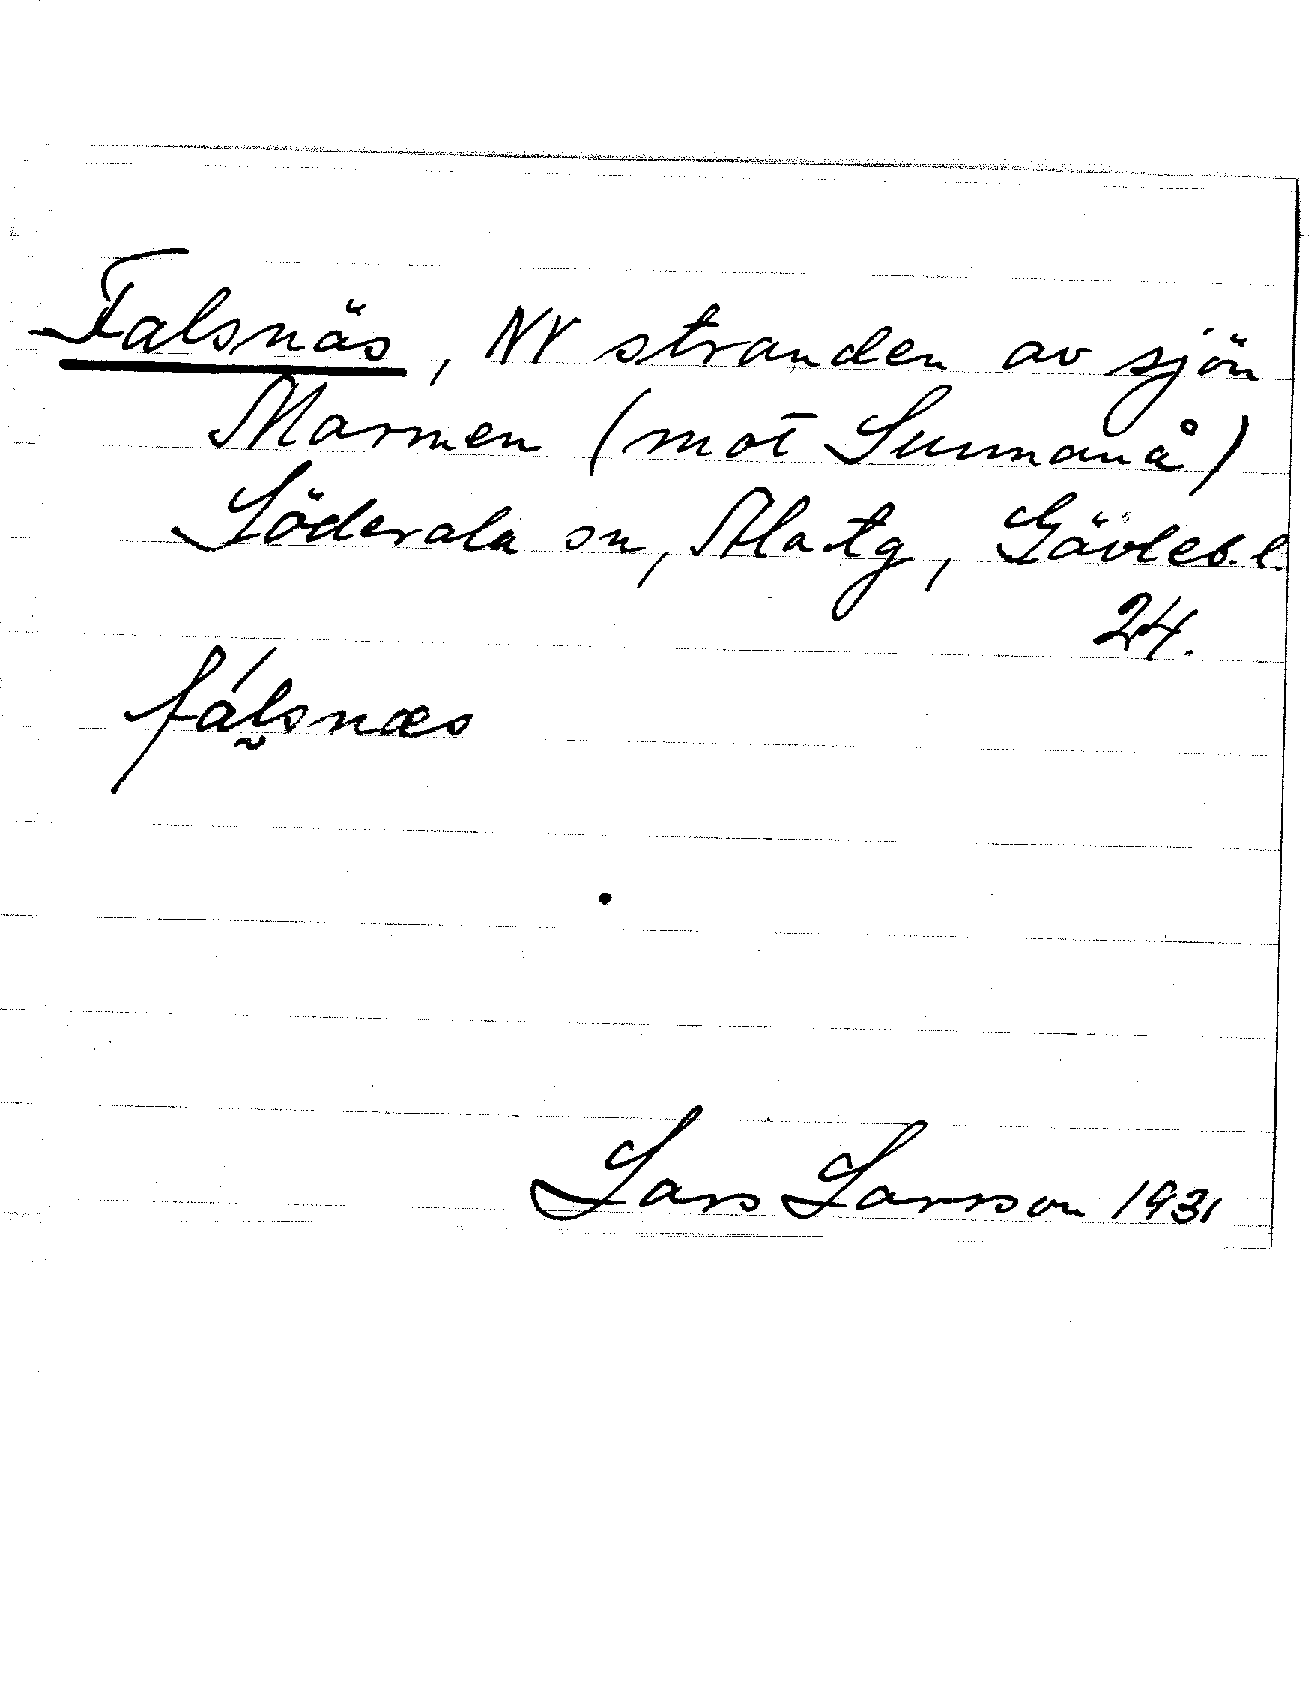 Falsnäs, NV stranden av sjön
Marmen (mot Sunnanå)
Söderala sn, Ala tg, Gävleb. l.
24.
fálsnæs
Lars Larsson 1931